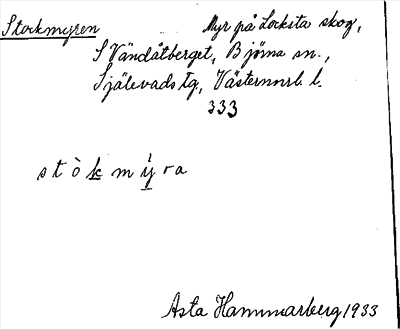 Stockmyren Myr på Locksta skog,
S Vändåtberget, Björna sn.,
Själevads tg, Västernorrl. l.
333
stòkmýra
Asta Hammarberg 1933